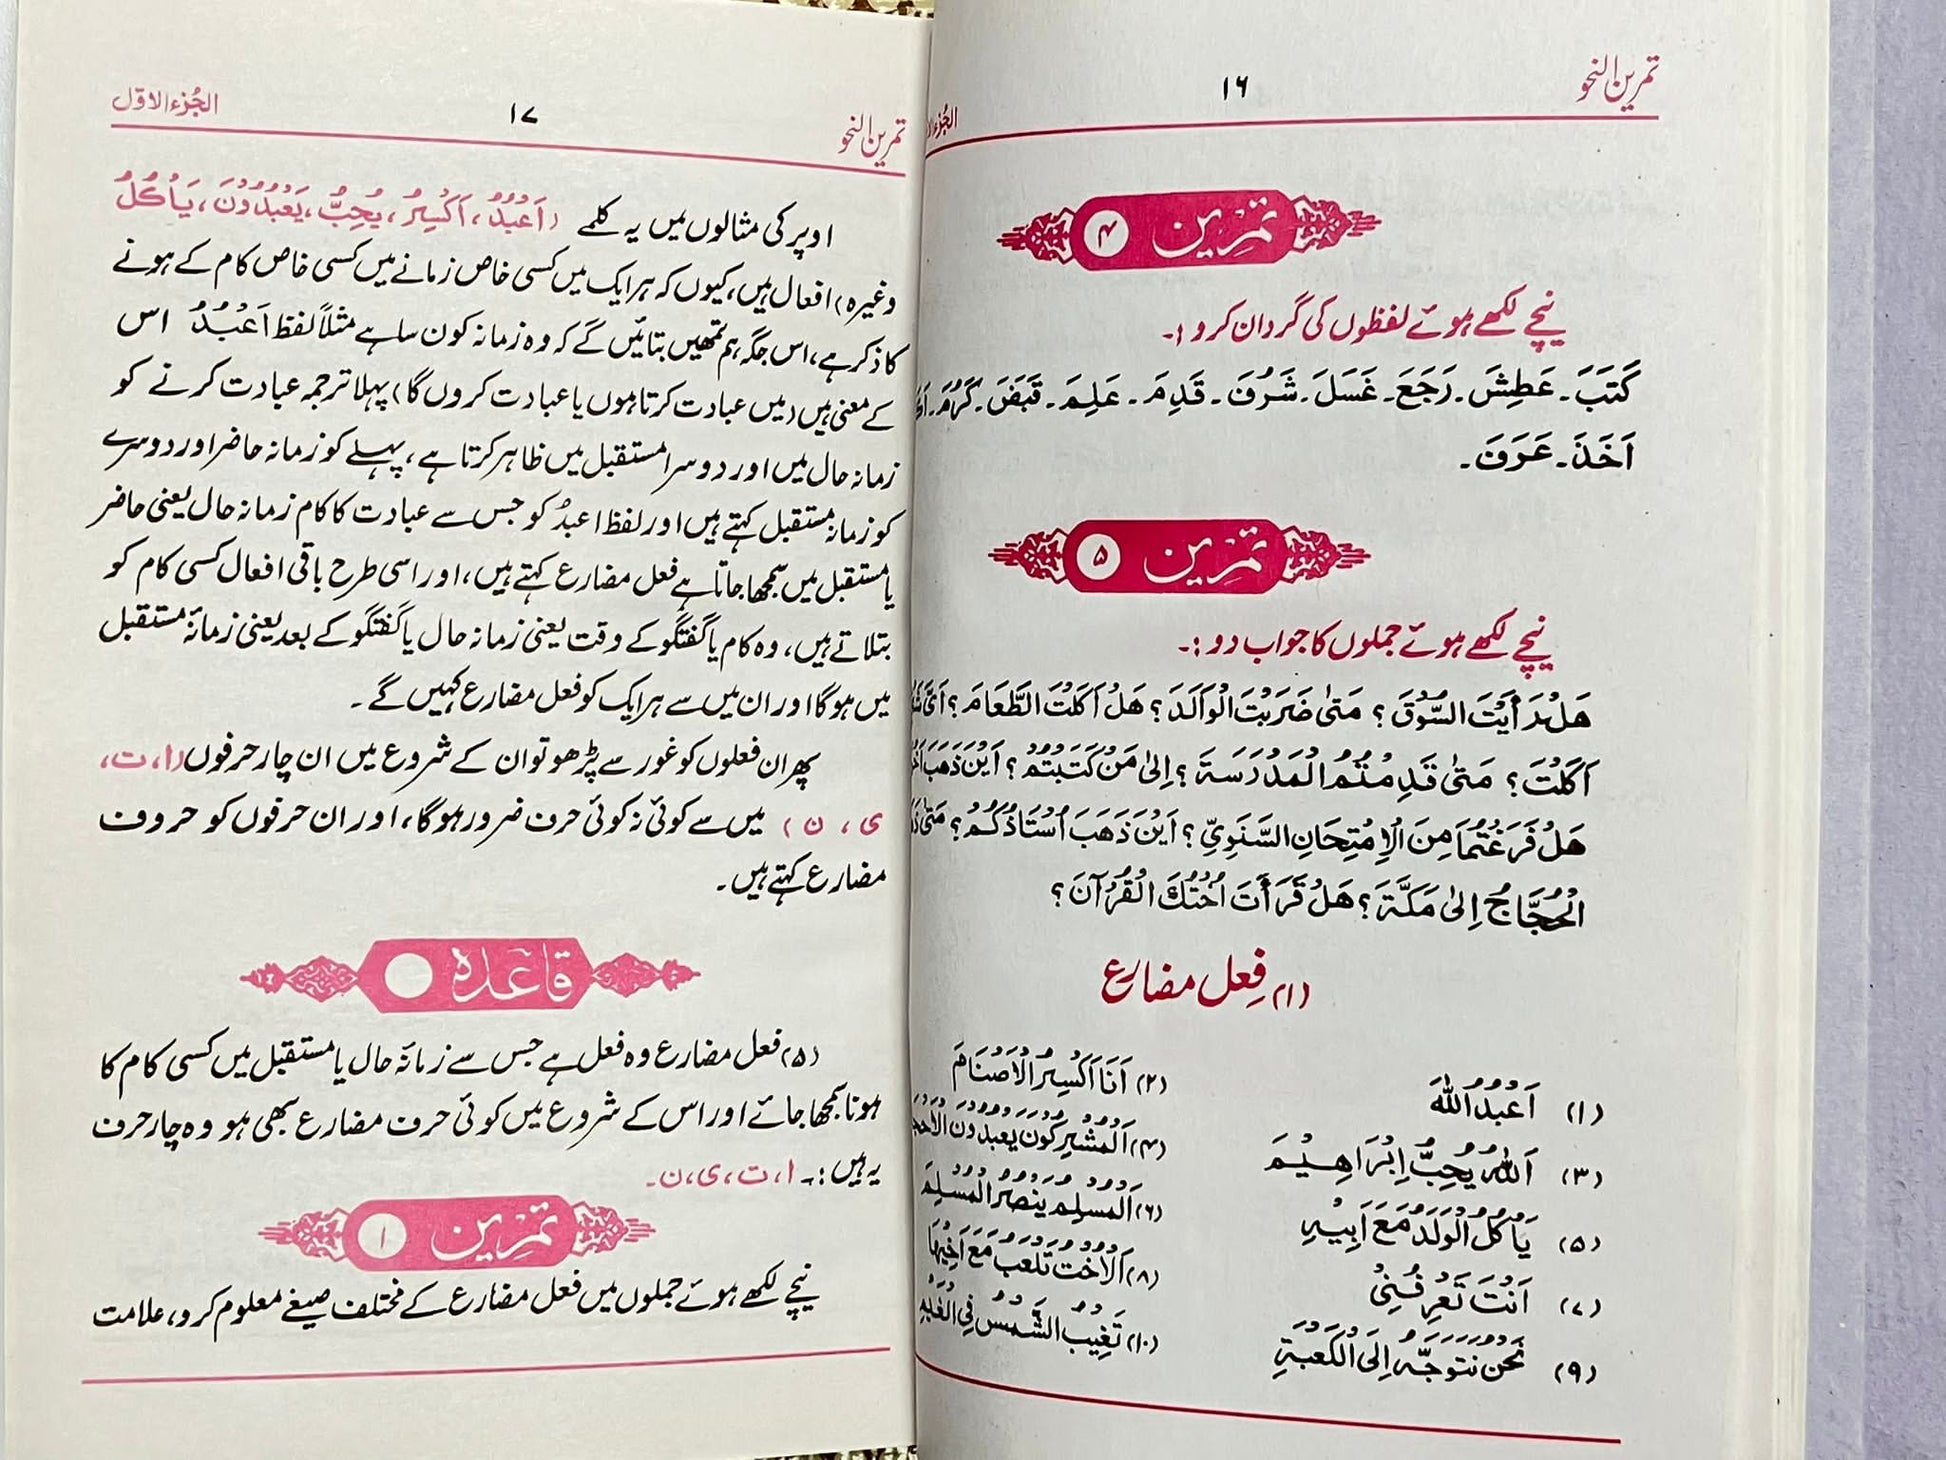 تمرین النحو
۱۶
تمرین ۴
نیچے لکھے ہوئے لفظوں کی گردان کرو:۔
کَتَبَ۔ عَطِشَ۔ رَجَعَ۔ غَسَلَ۔ شَرُفَ۔ قَدِمَ۔ عَلِمَ۔ قَبَضَ۔ کَرُمَ۔
اَخَذَ۔ عَرَفَ۔
تمرین ۵
نیچے لکھے ہوئے جملوں کا جواب دو:۔
هَلْ رَأَيْتَ السُّوْقَ؟ مَتٰى ضَرَبْتَ الْوَلَدَ؟ هَلْ اَكَلْتَ الطَّعَامَ؟ اَيَّ
اَكَلْتَ؟ مَتٰى قَدِمْتُمُ الْمَدْرَسَةَ؟ اِلٰى مَنْ كَتَبْتُمْ؟ اَيْنَ ذَهَبَ
هَلْ فَرَغْتُمَا مِنَ الْاِمْتِحَانِ السَّنَوِيِّ؟ اَيْنَ ذَهَبَ اُسْتَاذُكُمْ؟ مَتٰى
الْحُجَّاجُ اِلٰى مَكَّةَ؟ هَلْ قَرَأَتْ اُخْتُكَ الْقُرْآنَ؟
(۱) فِعل مضارع
(۱) اَعْبُدُ اللّٰهَ (۲) اَنَا اَكْسِرُ الْاَصْنَامَ
(۳) اَللّٰهُ يُحِبُّ اِبْرَاهِيْمَ (۴) اَلْمُشْرِكُوْنَ يَعْبُدُوْنَ
(۵) يَاْكُلُ الْوَلَدُ مَعَ اَبِيْهِ (۶) اَلْمُسْلِمُ يَنْصُرُ الْمُسْلِمَ
(۷) اَنْتَ تَعْرِفُنِيْ (۸) اَلْاُخْتُ تَلْعَبُ مَعَ اَخِيْهَا
(۹) نَحْنُ نَتَوَجَّهُ اِلَى الْكَعْبَةِ (۱۰) تَغِيْبُ الشَّمْسُ فِي
تمرین النحو
۱۷
الجُزء الاوّل
اوپر کی مثالوں میں یہ کلمے (اَعْبُدُ، اَکْسِرُ، یُحِبُّ، یَعْبُدُوْنَ، یَاْکُلُ
وغیرہ) افعال ہیں، کیوں کہ ہر ایک میں کسی خاص زمانے میں کسی خاص کام کے ہونے
کا ذکر ہے، اس جگہ ہم تمھیں بتائیں گے کہ وہ زمانہ کون سا ہے مثلاً لفظ اَعْبُدُ اس
کے معنی ہیں (میں عبادت کرتا ہوں یا عبادت کروں گا) پہلا ترجمہ عبادت کرنے کو
زمانہ حال میں اور دوسرا مستقبل میں ظاہر کرتا ہے، پہلے کو زمانہ حاضر اور دوسرے
کو زمانہ مستقبل کہتے ہیں اور لفظ اعبدُ کو جس سے عبادت کا کام زمانہ حال یعنی حاضر
یا مستقبل میں سمجھا جاتا ہے فعل مضارع کہتے ہیں، اور اسی طرح باقی افعال کسی کام کو
بتلاتے ہیں، وہ کام یا گفتگو کے وقت یعنی زمانہ حال یا گفتگو کے بعد یعنی زمانۂ مستقبل
میں ہوگا اور ان میں سے ہر ایک کو فعل مضارع کہیں گے۔
پھر ان فعلوں کو غور سے پڑھو تو ان کے شروع میں ان چار حرفوں (ا، ت،
ی، ن) میں سے کوئی نہ کوئی حرف ضرور ہوگا، اور ان حرفوں کو حروف
مضارع کہتے ہیں۔
قاعدہ
(۵) فعل مضارع وہ فعل ہے جس سے زمانۂ حال یا مستقبل میں کسی کام کا
ہونا سمجھا جائے اور اس کے شروع میں کوئی حرف مضارع بھی ہو وہ چار حرف
یہ ہیں:۔ ا، ت، ی، ن۔
تمرین ۱
نیچے لکھے ہوئے جملوں میں فعل مضارع کے مختلف صیغے معلوم کرو، علامت